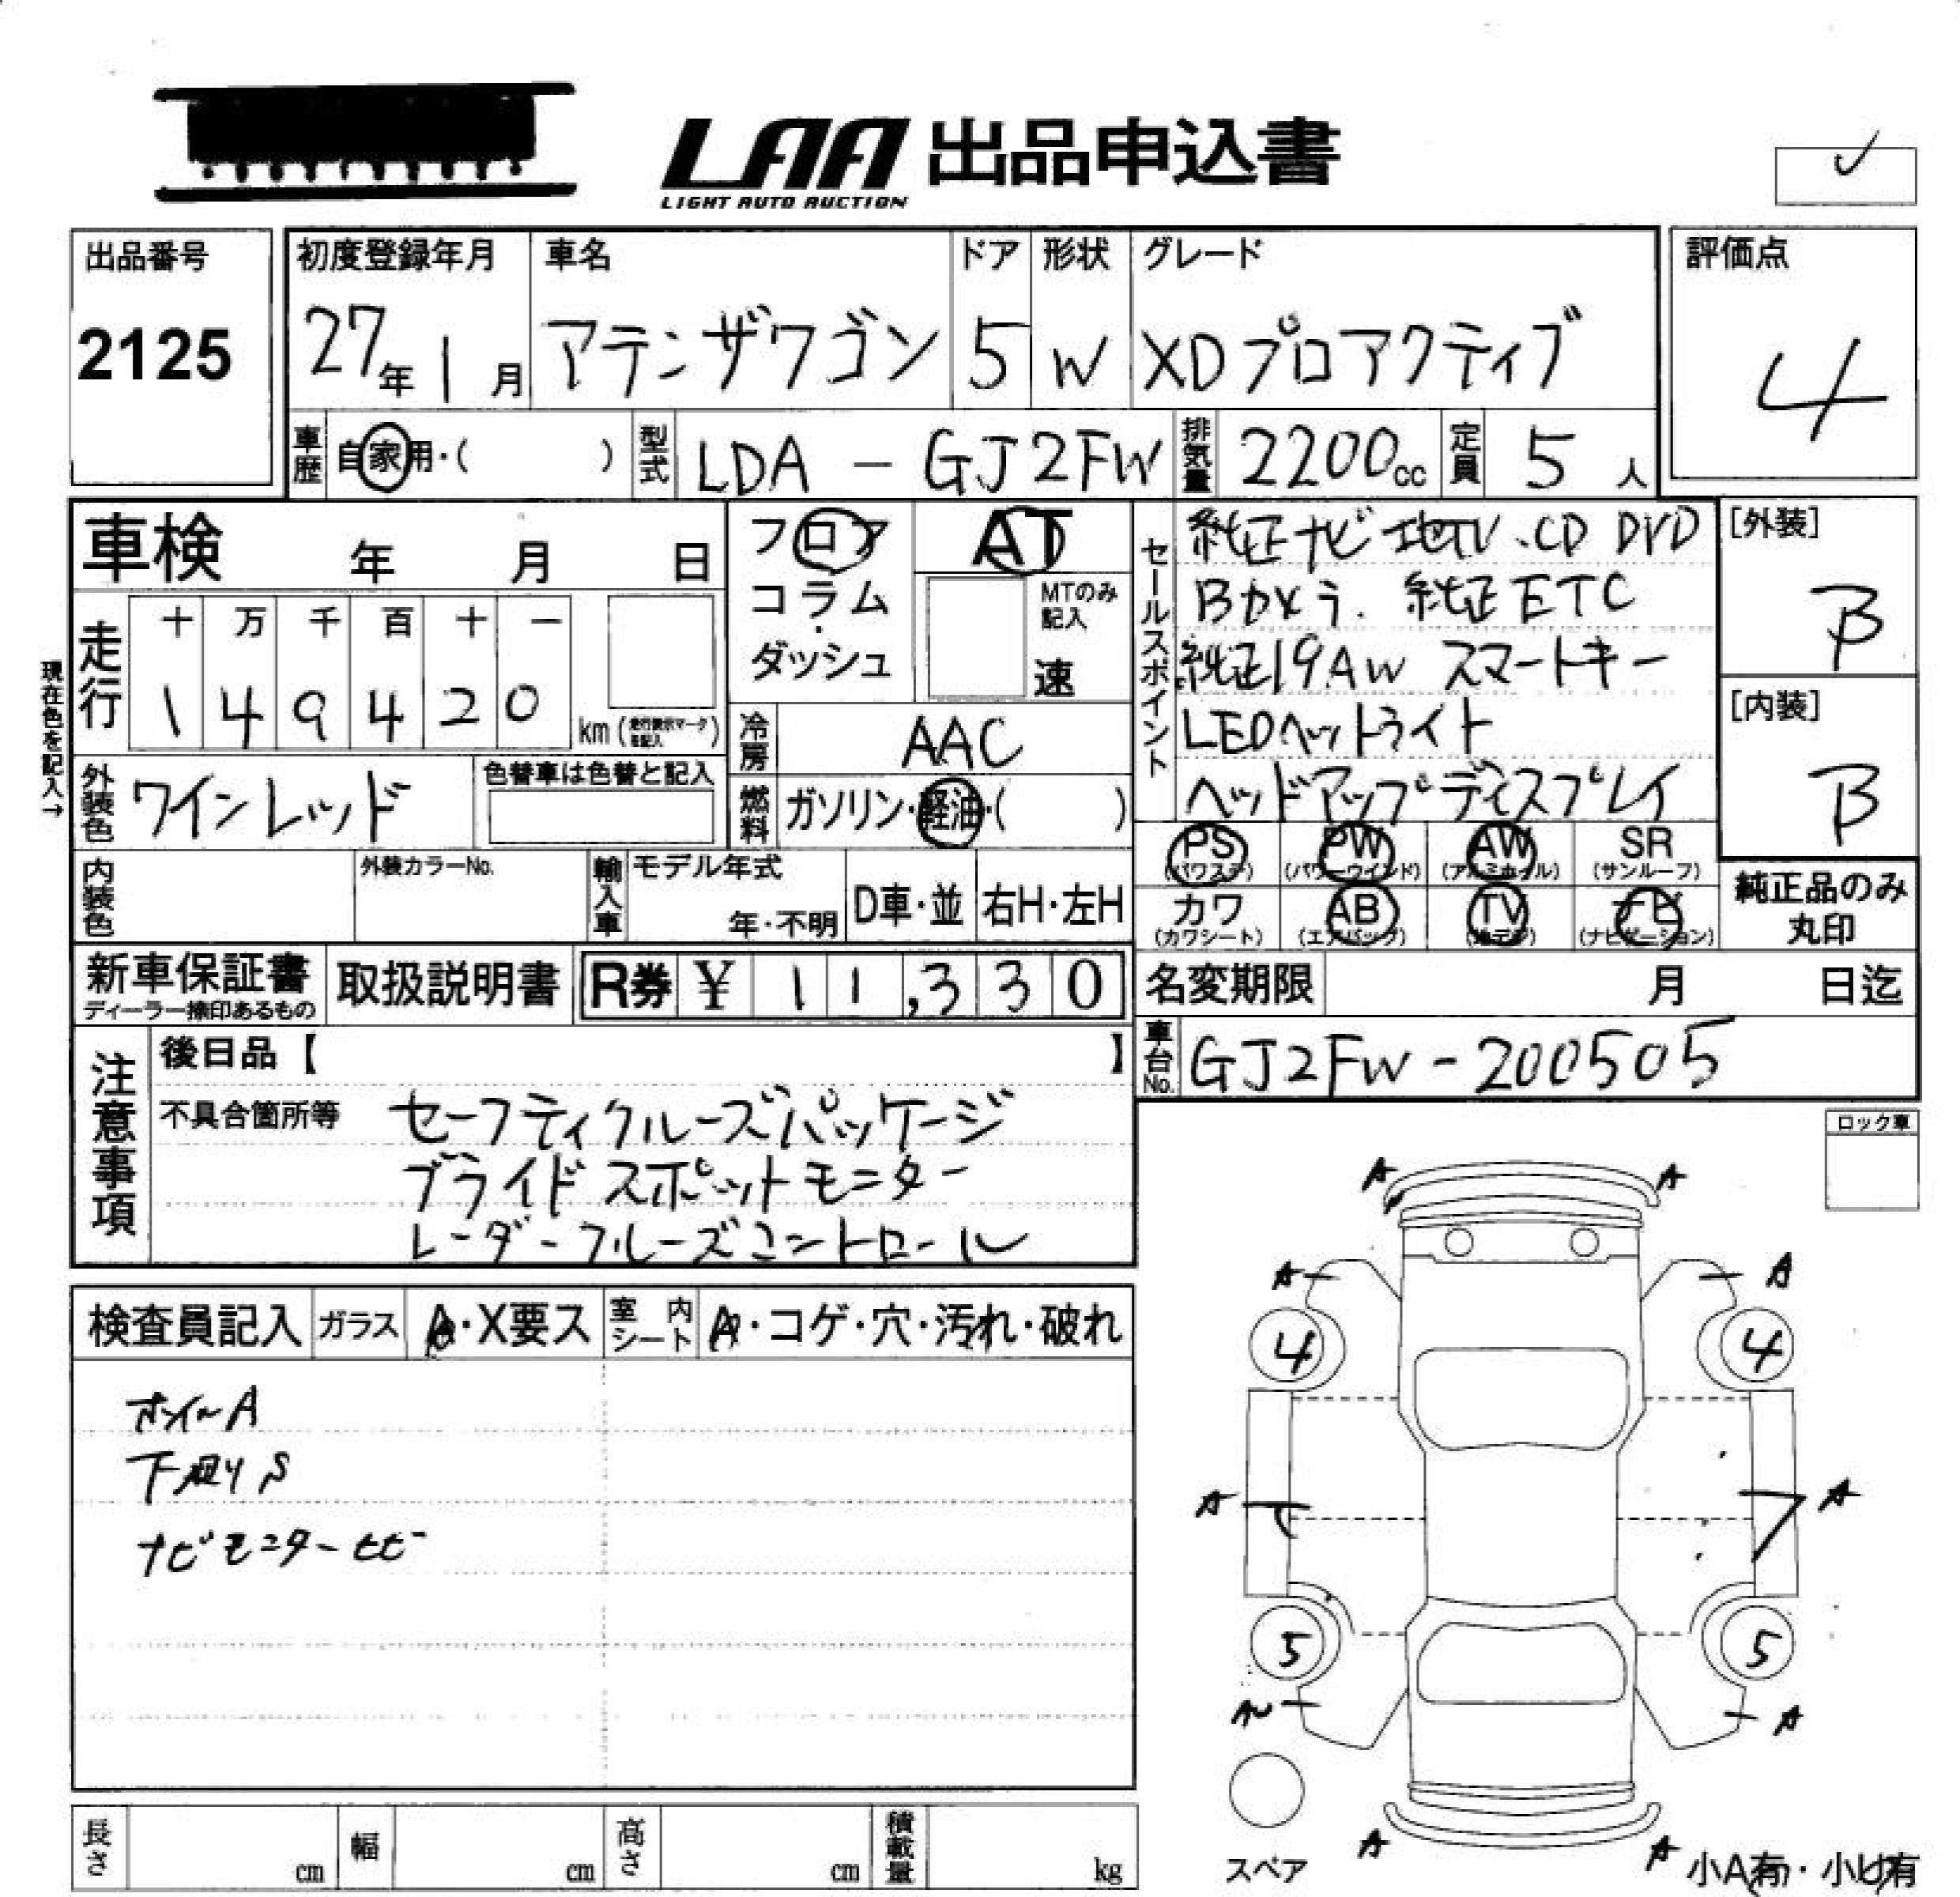 LAA 出品申込書
LIGHT AUTO AUCTION
出品番号
2125
初度登録年月
27年 1月
車名
アテンザワゴン
ドア
5
形状
W
グレード
XDプロアクティブ
評価点
4
車歴
自家用・( )
型式
LDA - GJ2FW
排気量
2200cc
定員
5 人
車検 年 月 日
フロア
コラム
・
ダッシュ
AT
MTのみ
記入
速
セールスポイント
純正ナビ 地TV .CD DVD
Bカメラ. 純正ETC
純正19AW スマートキー
LEDヘットライト
ヘッドアップディスプレイ
[外装]
B
[内装]
B
現在色を記入→
走行
十 万 千 百 十 一
1 4 9 4 2 0
km (走行表示マーク要記入)
冷房
AAC
外装色
ワインレッド
色替車は色替と記入
燃料
ガソリン・軽油・( )
PS
(パワステ)
PW
(パワーウインド)
AW
(アルミホイル)
SR
(サンルーフ)
カワ
(カワシート)
AB
(エアバッグ)
TV
(地デジ)
ナビ
(ナビゲーション)
純正品のみ
丸印
内装色
外装カラーNo.
輸入車
モデル年式
年・不明
D車・並
右H・左H
新車保証書
ディーラー捺印あるもの
取扱説明書
R券 ¥ 11,330
名変期限 月 日迄
車台No.
GJ2FW-200505
注意事項
後日品【 】
不具合箇所等
セーフティクルーズパッケージ
ブライドスポットモニター
レーダークルーズコントロール
ロック車
検査員記入
ガラス
A・X要ス
室内シート
A・コゲ・穴・汚れ・破れ
ホイールA
下廻りS
ナビモニターヒビ
A A
A A
4 4
A A
5 5
A
A A
スペア
小A有・小U有
長さ cm
幅 cm
高さ cm
積載量 kg